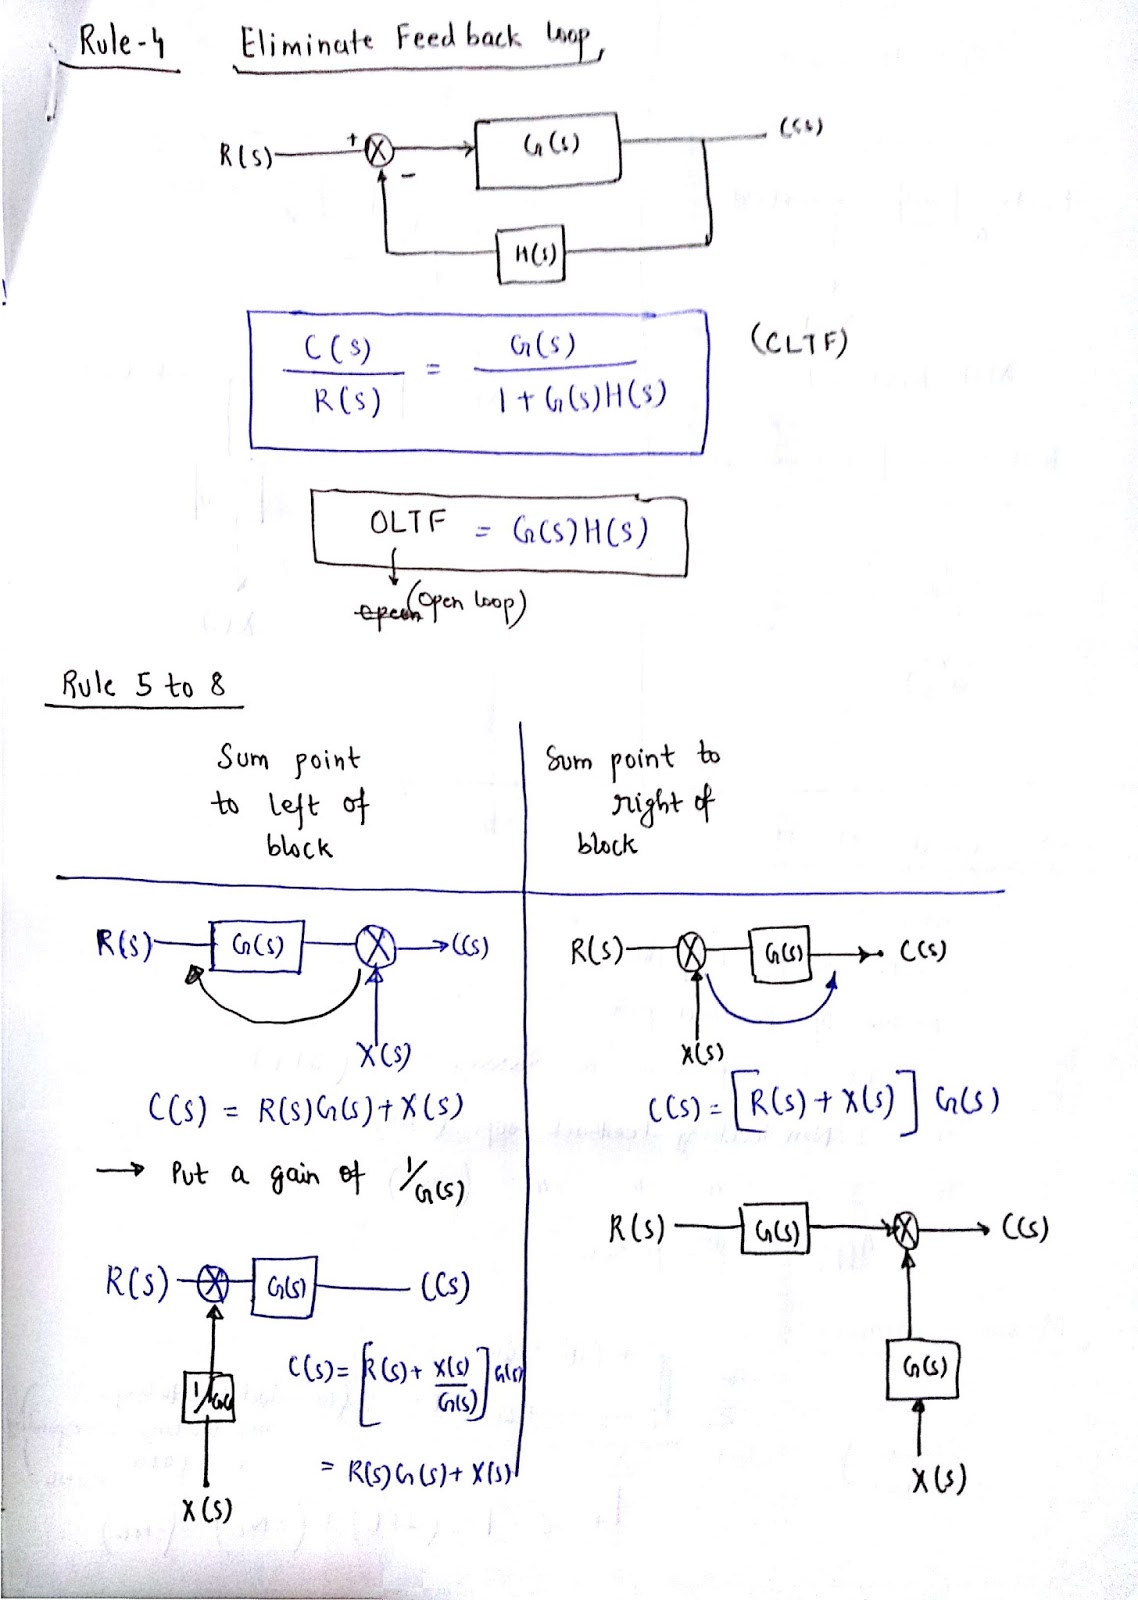 Rule-4 Eliminate Feedback loop
R(s) + G(s) C(s)
-
H(s)
C(s) / R(s) = G(s) / 1 + G(s)H(s) (CLTF)
OLTF = G(s)H(s)
(open loop)
Rule 5 to 8
Sum point
to left of
block
Sum point to
right of
block
R(s) G(s) X C(s)
X(s)
C(s) = R(s)G(s) + X(s)
→ Put a gain of 1/G(s)
R(s) G(s) C(s)
1/G(s)
X(s)
C(s) = [R(s) + X(s)/G(s)] G(s)
= R(s)G(s) + X(s)
R(s) G(s) C(s)
X(s)
C(s) = [R(s) + X(s)] G(s)
R(s) G(s) C(s)
G(s)
X(s)